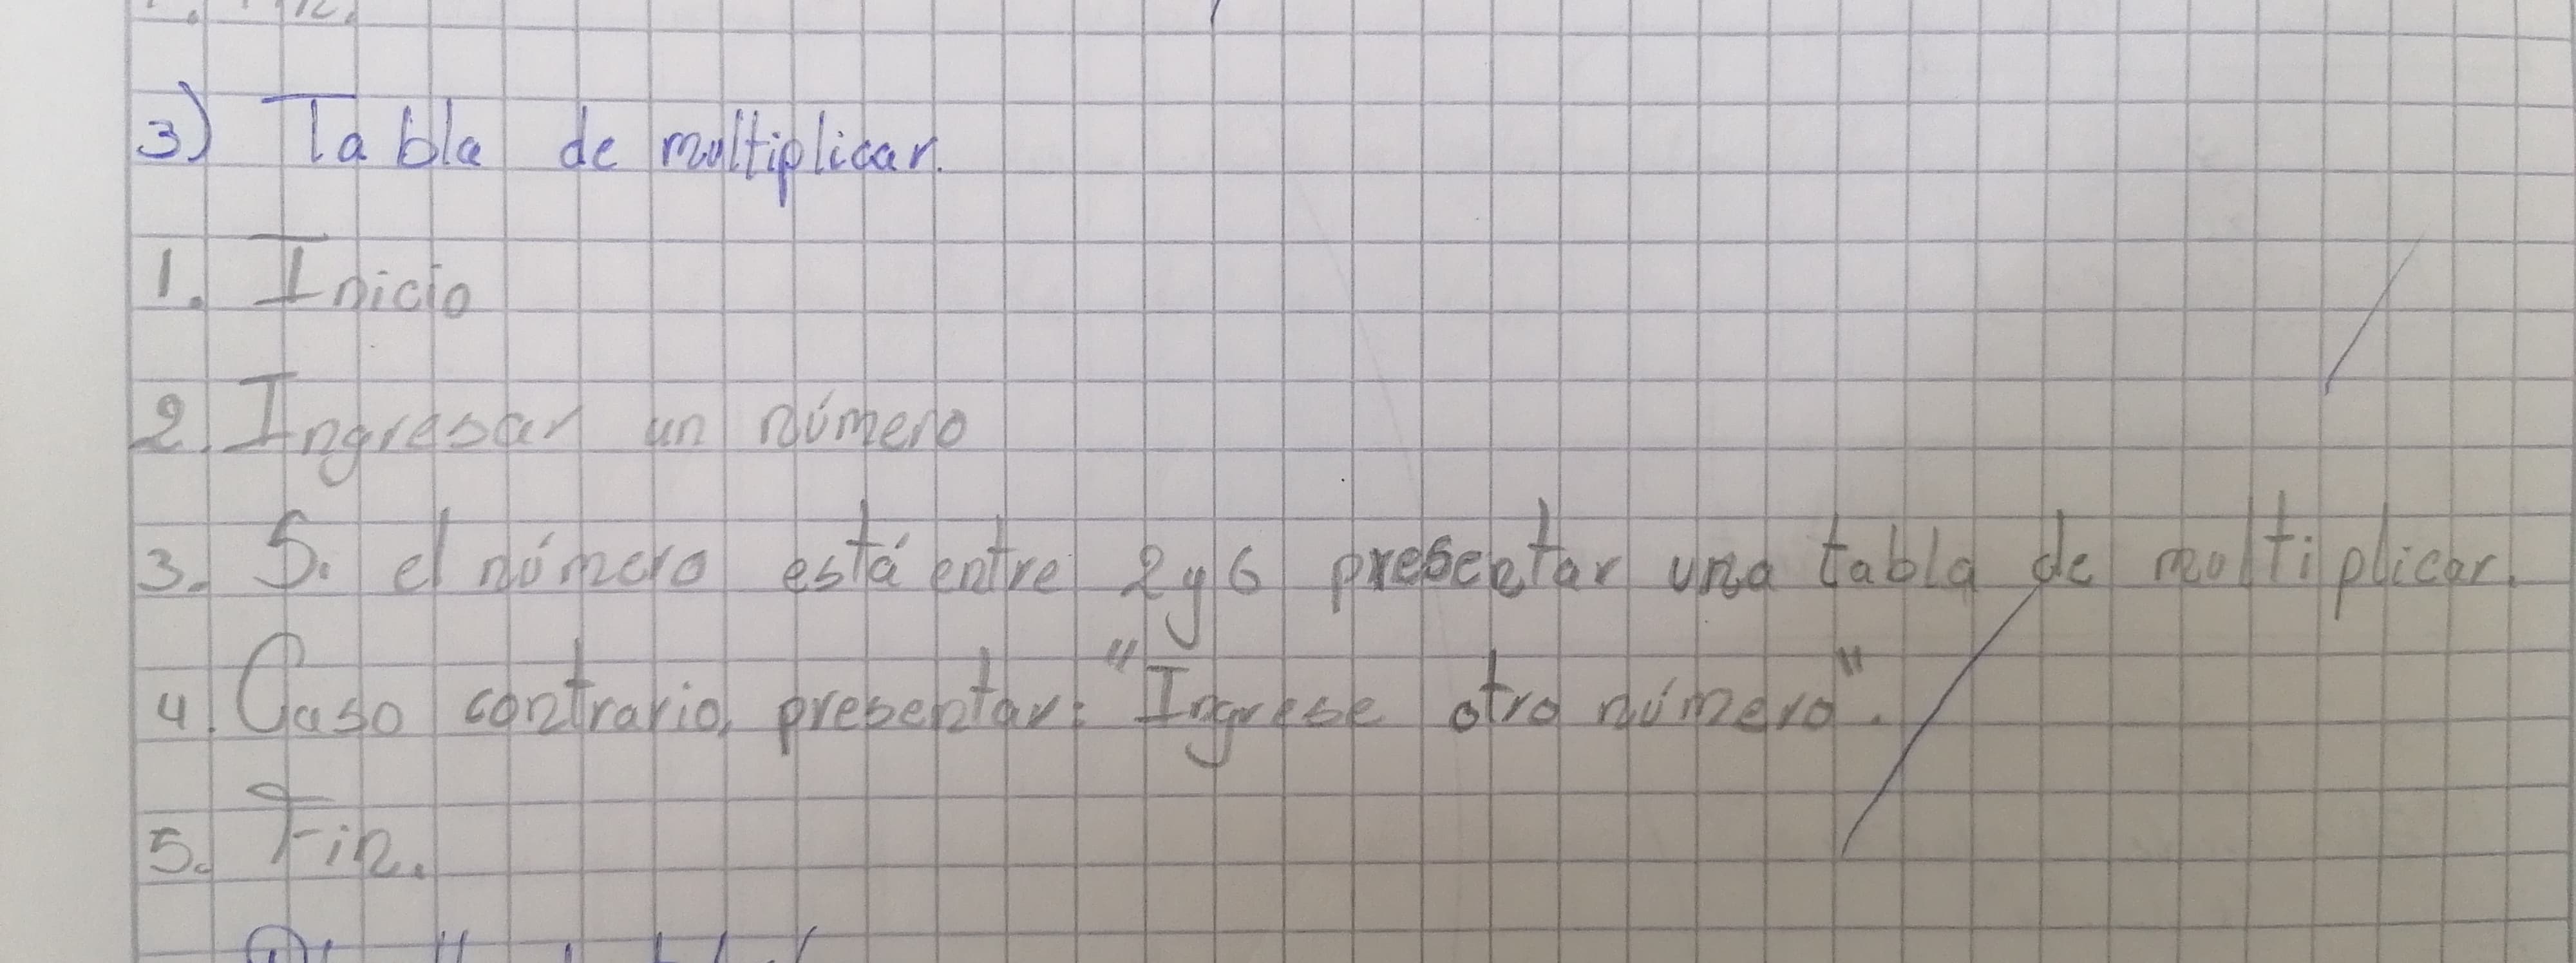 3) Tabla de multiplicar.
1. Inicio
2. Ingresar un número
3. Si el número está entre 2 y 6 presentar una tabla de multiplicar.
4. Caso contrario, presentar: "Ingrese otro número".
5. Fin.